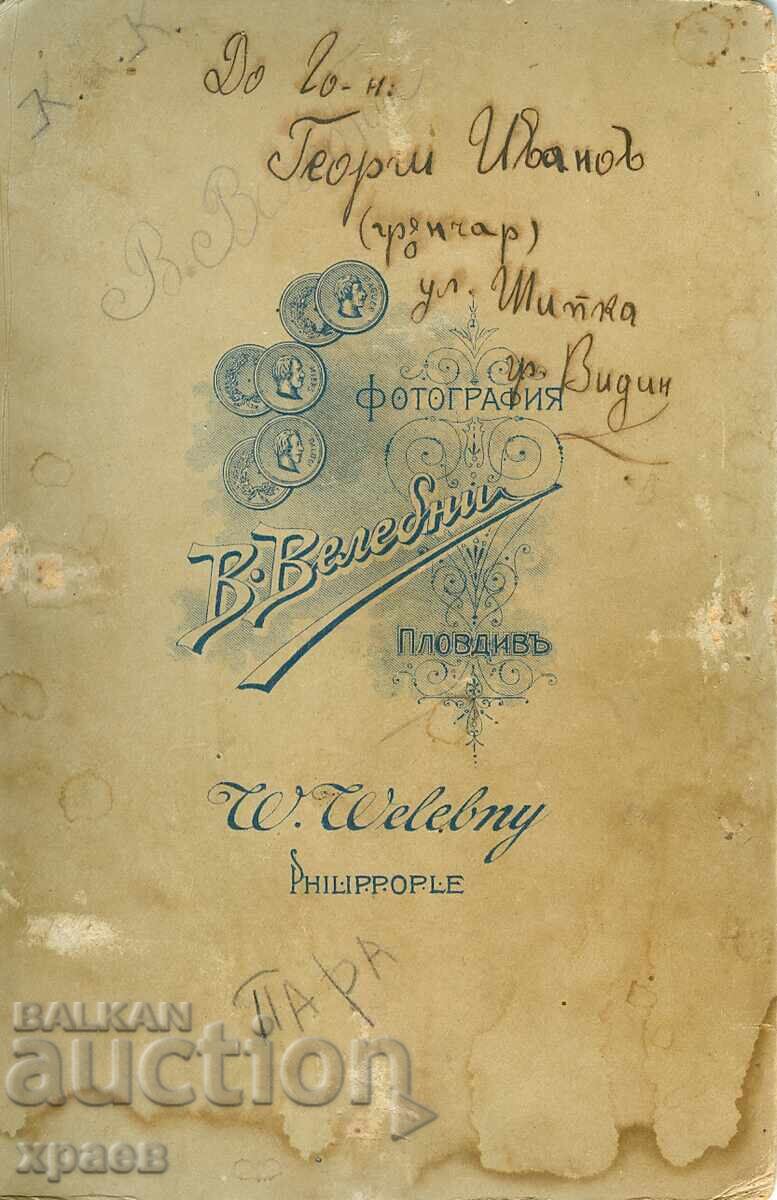 К. К.
До Го-н:
Георги Ивановъ
(грънчар)
ул. Шипка
гр. Видин
ФОТОГРАФИЯ
В. Велебни
ПЛОВДИВЪ
W. Welebny
PHILIPPOPLE
ПАРА
BALKAN
auction
храев